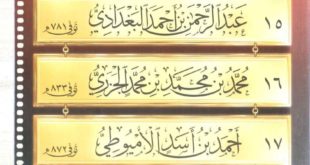 ١٥ عَبْدُ الرَّحْمَنِ بْنُ أَحْمَدَ الْبَغْدَادِيُّ توفي ٧٨١هـ
١٦ مُحَمَّدُ بْنُ مُحَمَّدِ بْنِ مُحَمَّدٍ الْجَزَرِيُّ توفي ٨٣٣هـ
١٧ أَحْمَدُ بْنُ أَسَدٍ الْأُمْيُوطِيُّ توفي ٨٧٢هـ